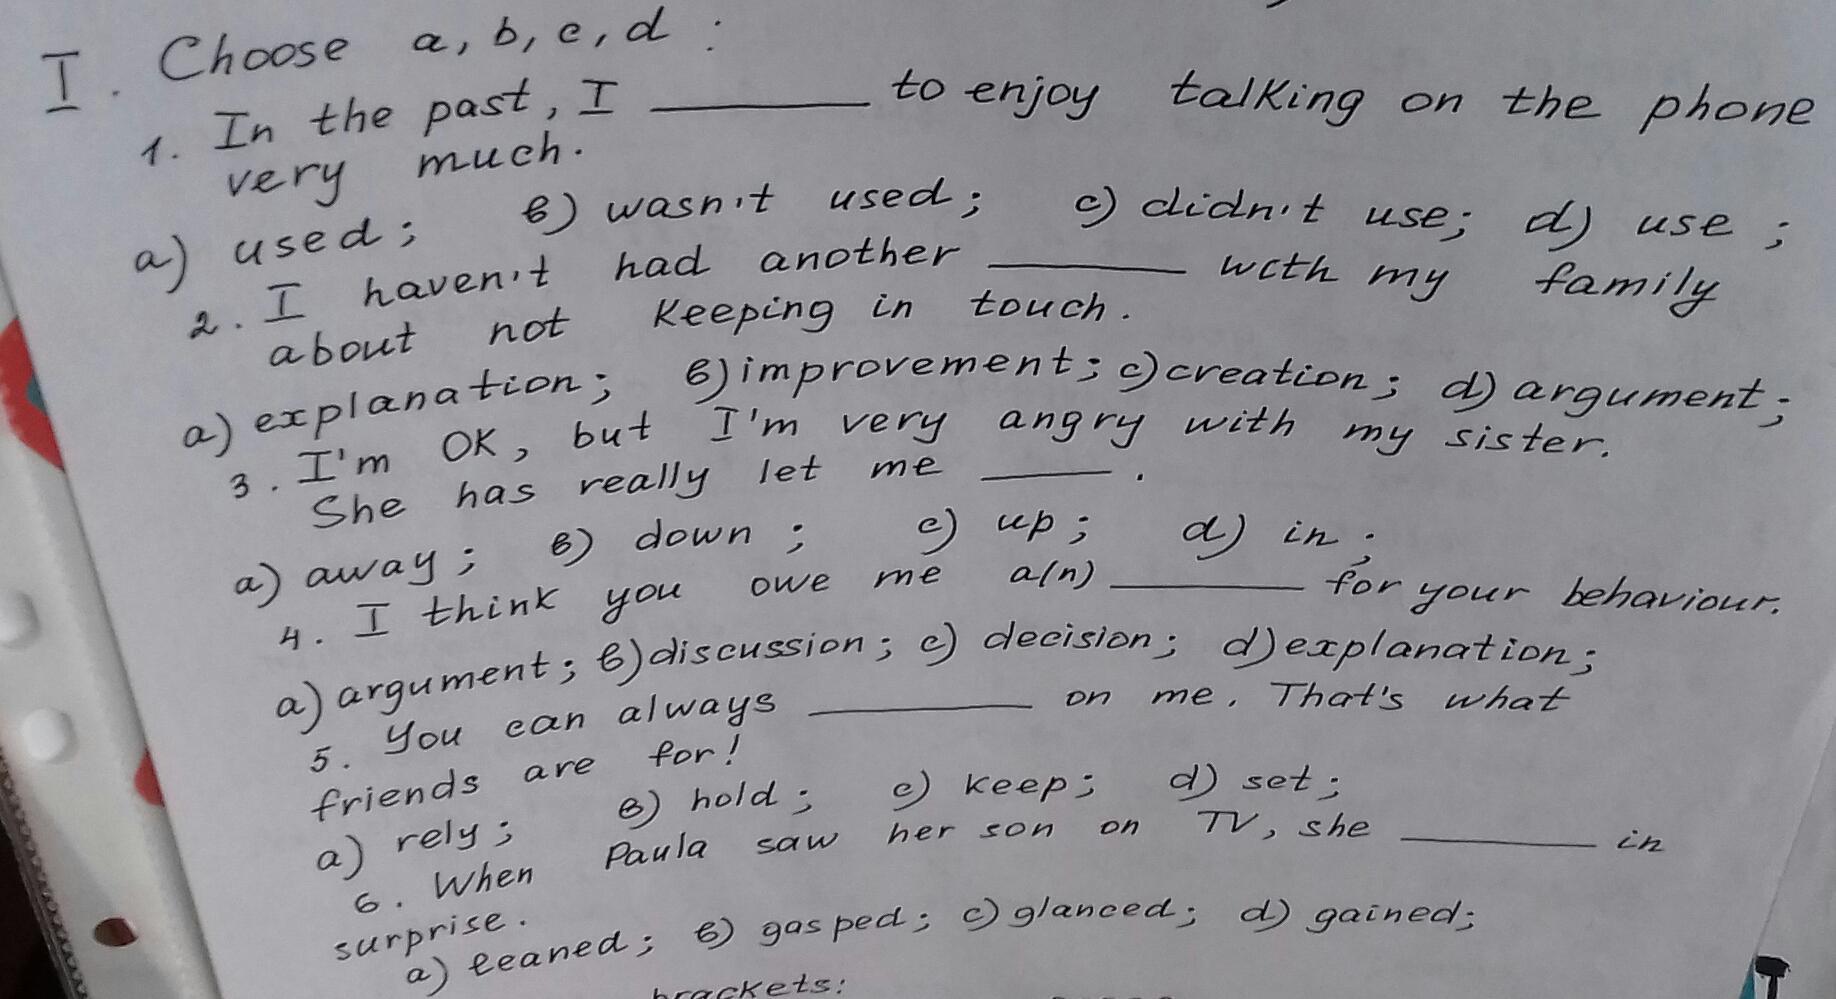 I. Choose a, b, c, d:
1. In the past, I ________ to enjoy talking on the phone
very much.
a) used; в) wasn't used; c) didn't use; d) use;
2. I haven't had another ________ with my family
about not keeping in touch.
a) explanation; в) improvement; c) creation; d) argument;
3. I'm OK, but I'm very angry with my sister.
She has really let me ________.
a) away; в) down; c) up; d) in;
4. I think you owe me a(n) ________ for your behaviour.
a) argument; в) discussion; c) decision; d) explanation;
5. You can always ________ on me. That's what
friends are for!
a) rely; в) hold; c) keep; d) set;
6. When Paula saw her son on TV, she ________ in
surprise.
a) leaned; в) gasped; c) glanced; d) gained;
brackets: